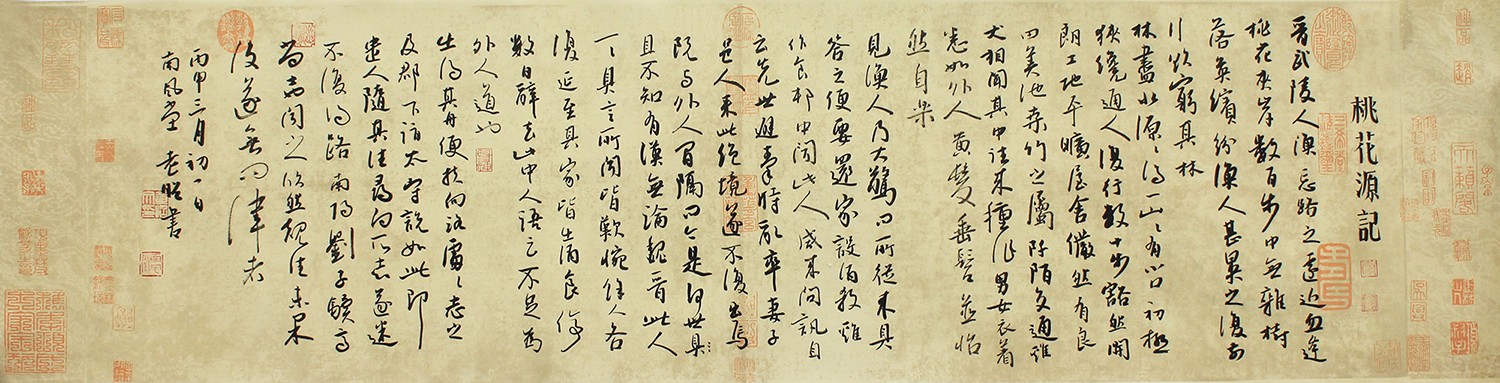 桃花源記
晉武陵人漁忘路之遠近忽逢
桃花夾岸數百步中無雜樹
落英繽紛漁人甚異之復前
行欲窮其林
林盡水源〻得一山〻有小口初極
狹纔通人復行數十步豁然開
朗土地平曠屋舍儼然有良
田美池桑竹之屬阡陌交通雞
犬相聞其中往來種作男女衣着
悉如外人黃髮垂髫並怡
然自樂
見漁人乃大驚問所從來具
答之便要還家設酒殺雞
作食村中聞此人咸來問訊自
云先世避秦時亂率妻子
邑人來此絕境遂不復出焉
既與外人間隔問今是何世具
且不知有漢無論魏晉此人
一一具言所聞皆歎惋餘人各
復延至其家皆出酒食停
數日辭去此中人語云不足為
外人道也
出得其舟便扶向路處〻志之
及郡下詣太守說如此即
遣人隨其往尋向所志遂迷
不復得路南陽劉子驥高
尚志聞之欣然規往未果
後遂無問津者
丙申三月初一日
南風堂 老昭書